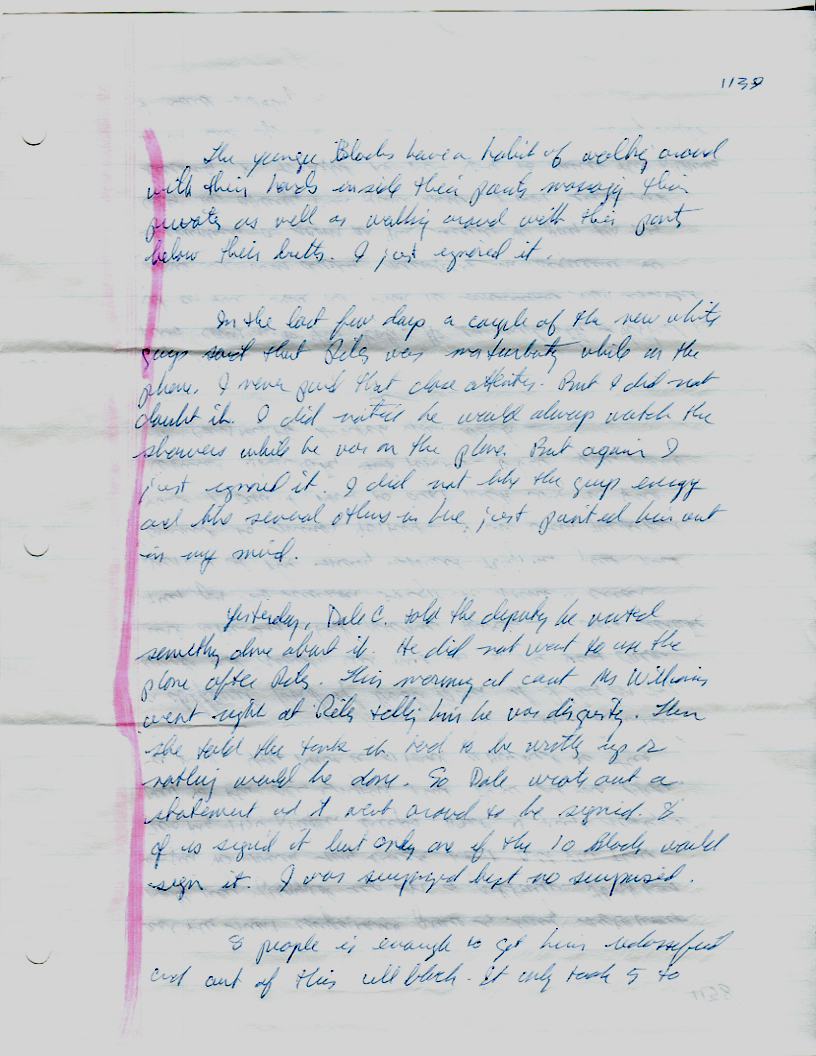 1139
The younger Blacks have a habit of walking around
with their hands inside their pants massaging their
privates as well as walking around with their pants
below their butts. I just ignored it.
In the last few days a couple of the new white
guys said that Riley was masturbating while on the
phone. I never paid that close attention. But I did not
doubt it. I did notice he would always watch the
showers while he was on the phone. But again I
just ignored it. I did not like the guys energy
and like several others in here, just painted him out
in my mind.
Yesterday, Dale C. told the deputy he wanted
something done about it. He did not want to use the
phone after Riley. This morning at count Ms Williams
went right at Riley telling him he was disgusting. Then
she told the tank it had to be writing up or
nothing would be done. So Dale wrote out a
statement and it went around to be signed. 8
of us signed it but only one of the 10 blacks would
sign it. I was surprised but no surprised.
8 people is enough to get him reclassified
and out of this cell block. It only took 5 to